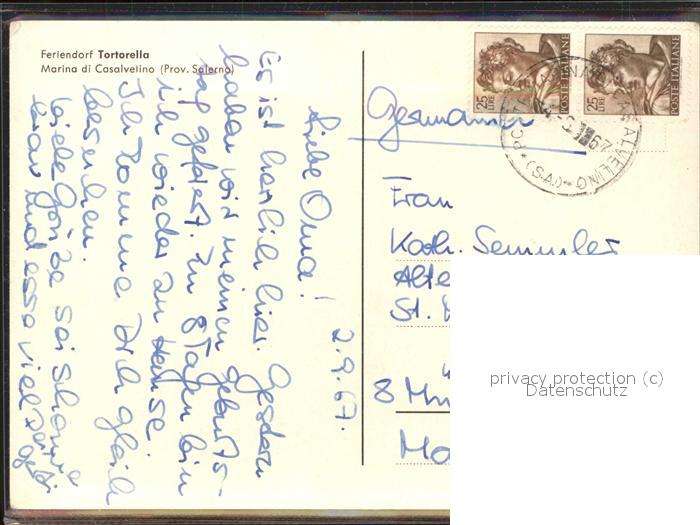 Feriendorf Tortorella
Marina di Casalvelino (Prov. Salerno)
2.9.67.
Liebe Oma!
Es ist herrlich hier. Gestern
haben wir meinen Geburts-
tag gefeiert. In 8 Tagen bin
ich wieder zu Hause.
Ich komme Dich gleich
besuchen.
Viele Grüße sei schon
brav und esse viel
25 LIRE
POSTE ITALIANE
25 LIRE
POSTE ITALIANE
67
(SA)
Germania
Frau
Kath. Semmler
Alte
St.
8 Mün
privacy protection (c)
Datenschutz